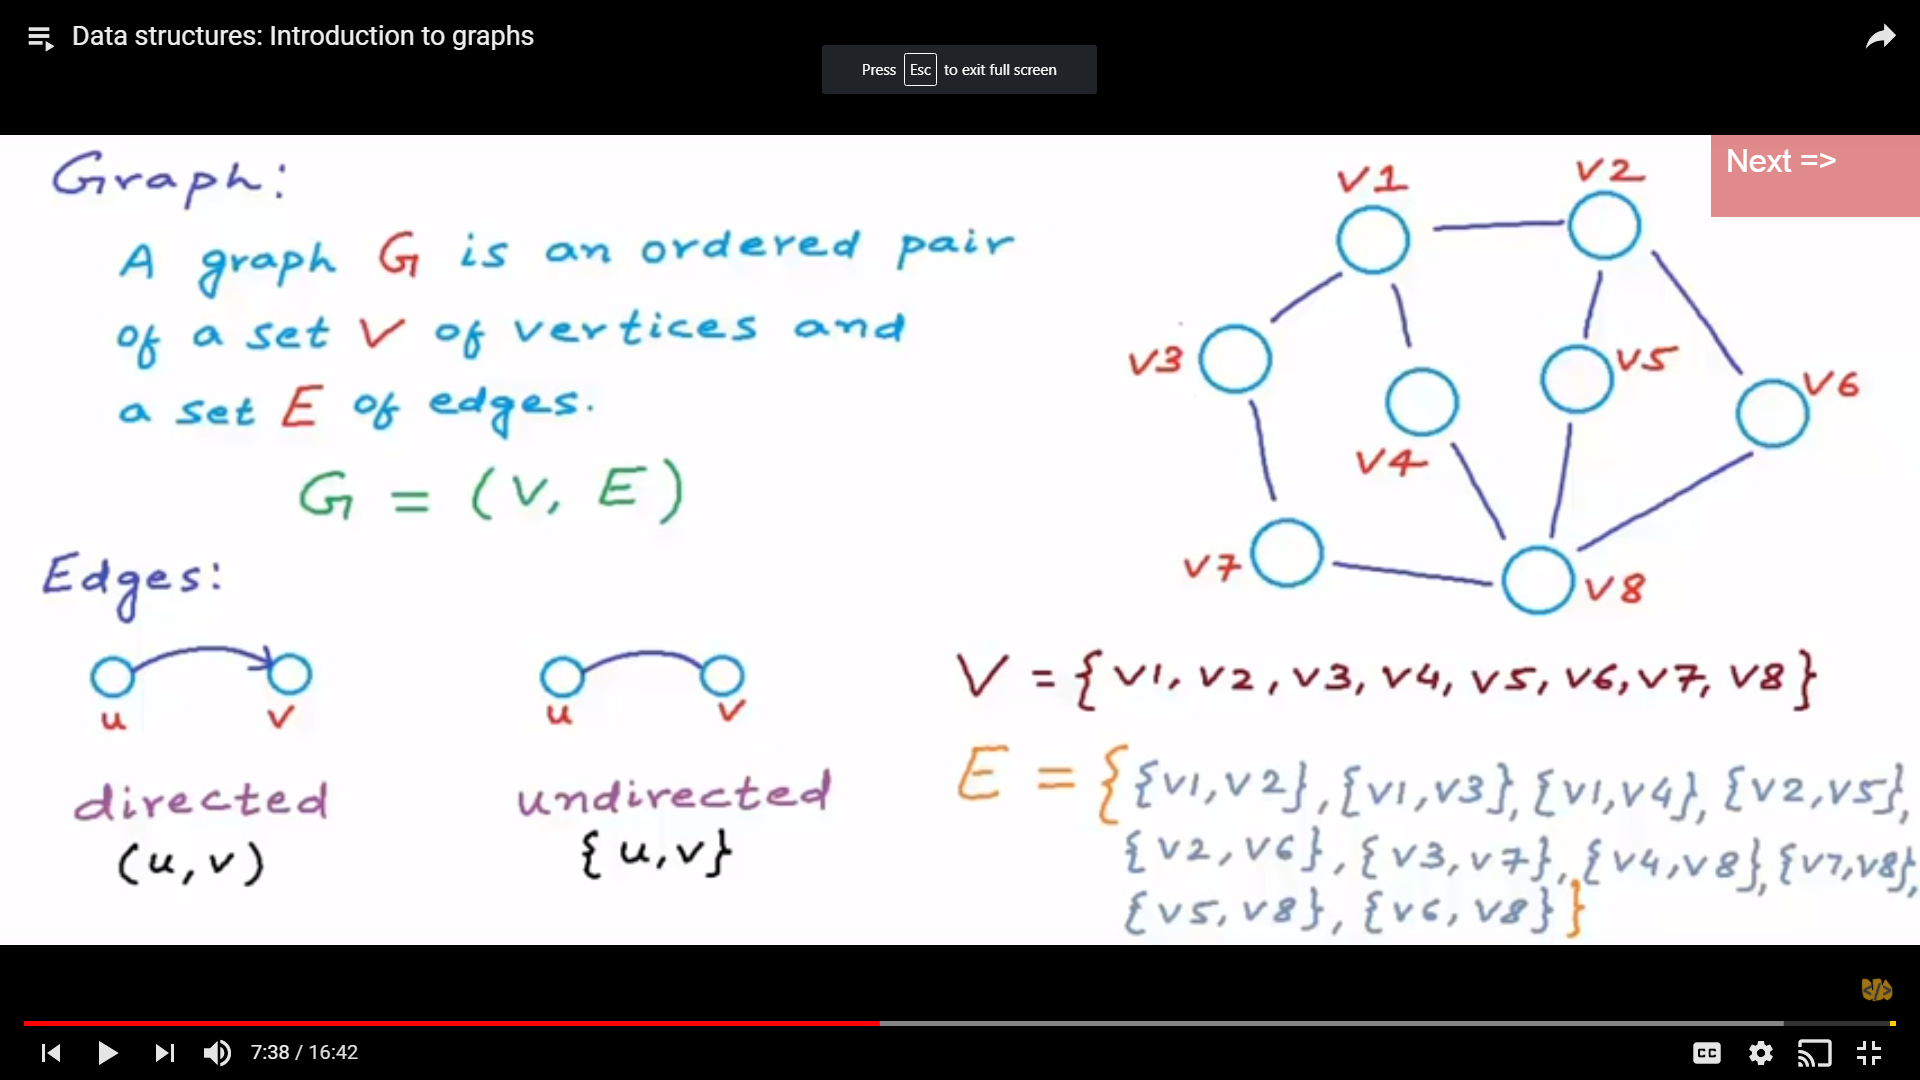 Data structures: Introduction to graphs
Press Esc to exit full screen
Next =>
Graph:
A graph G is an ordered pair
of a set V of vertices and
a set E of edges.
G = (V, E)
Edges:
u
v
directed
(u, v)
u
v
undirected
{u, v}
v1
v2
v3
v4
v5
v6
v7
v8
V = {v1, v2, v3, v4, v5, v6, v7, v8}
E = {{v1, v2}, {v1, v3}, {v1, v4}, {v2, v5},
{v2, v6}, {v3, v7}, {v4, v8}, {v7, v8},
{v5, v8}, {v6, v8}}
7:38 / 16:42
CC